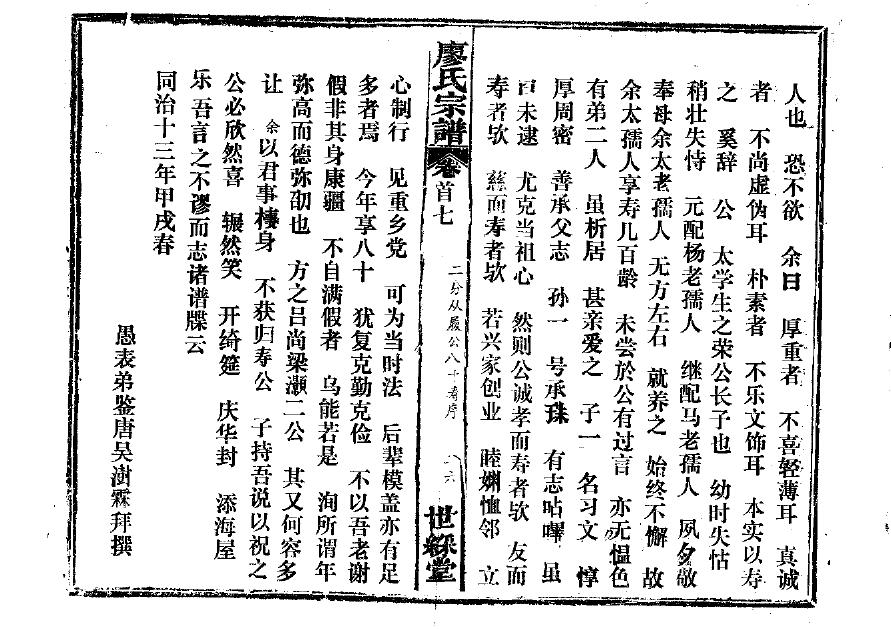 人也 恐不欲 余曰 厚重者 不喜轻薄耳 真诚
者 不尚虚伪耳 朴素者 不乐文饰耳 本实以寿
之 奚辞 公 太学生之荣公长子也 幼时失怙
稍壮失恃 元配杨老孺人 继配马老孺人 夙夕敬
奉母余太老孺人 无方左右 就养之 始终不懈 故
余太孺人享寿几百龄 未尝於公有过言 亦无愠色
有弟二人 虽析居 甚亲爱之 子一 名习文 惇
厚周密 善承父志 孙一 号承珠 有志呫嗶 虽
未逮 尤克当祖心 然则公诚孝而寿者欤 友而
寿者欤 慈而寿者欤 若兴家创业 睦姻恤邻 立
廖氏宗譜 卷首七 二分从履公八十寿序 六 世綵堂
心制行 见重乡党 可为当时法 后辈模盖亦有足
多者焉 今年享八十 犹复克勤克俭 不以吾老谢
假非其身康疆 不自满假者 乌能若是 洵所谓年
弥高而德弥劭也 方之吕尚梁灏二公 其又何容多
让 余以君事棲身 不获归寿公 子持吾说以祝之
公必欣然喜 辗然笑 开绮筵 庆华封 添海屋
乐 吾言之不谬而志诸谱牒云
同治十三年甲戌春
愚表弟鉴唐吴澍霖拜撰